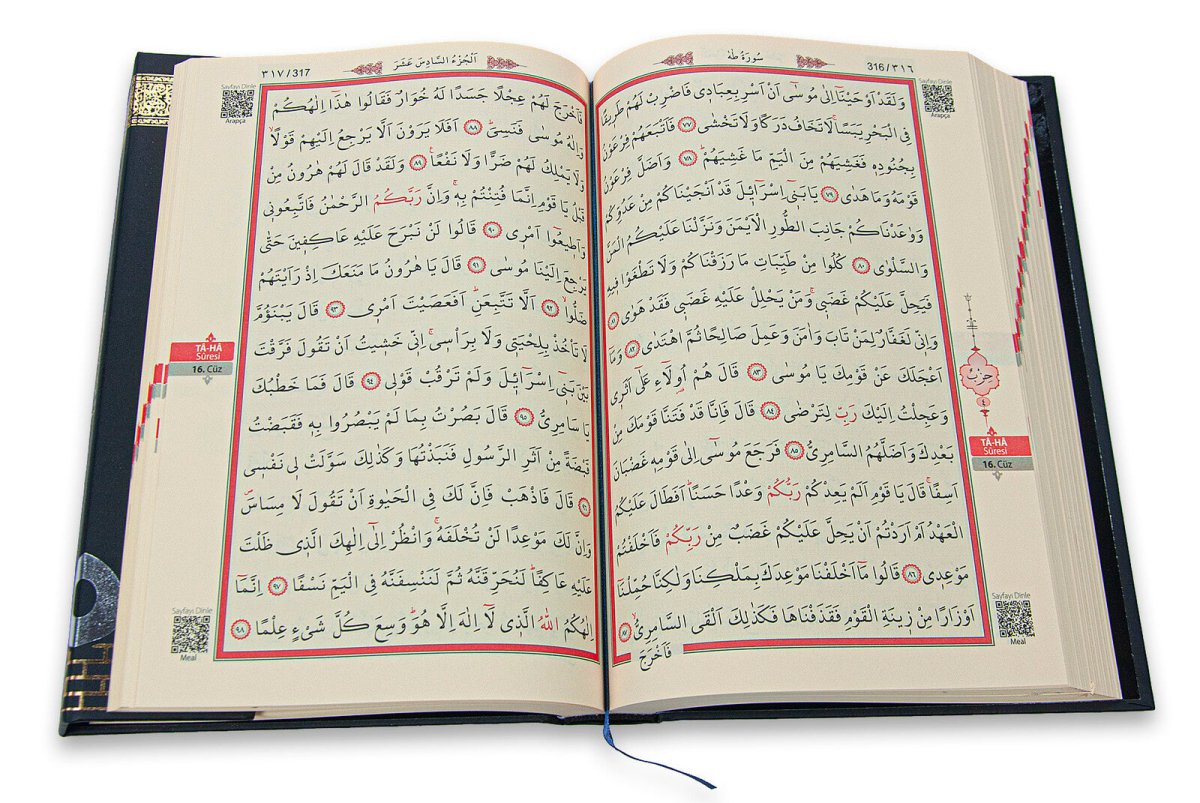 سُورَةُ طٰهٰ
316/٣١٦
Sayfayı Dinle
Arapça
وَلَقَدْ اَوْحَيْنَٓا اِلٰى مُوسٰٓى اَنْ اَسْرِ بِعِبَادٖى فَاضْرِبْ لَهُمْ طَرٖيقًا
فِى الْبَحْرِ يَبَسًاۙ لَا تَخَافُ دَرَكًا وَلَا تَخْشٰى ٧٧ فَاَتْبَعَهُمْ فِرْعَوْنُ
بِجُنُودِهٖ فَغَشِيَهُمْ مِنَ الْيَمِّ مَا غَشِيَهُمْ ٧٨ وَاَضَلَّ فِرْعَوْنُ
قَوْمَهُ وَمَا هَدٰى ٧٩ يَا بَنٖٓى اِسْرَٓائٖلَ قَدْ اَنْجَيْنَاكُمْ مِنْ عَدُوِّكُمْ
وَوٰعَدْنَاكُمْ جَانِبَ الطُّورِ الْاَيْمَنَ وَنَزَّلْنَا عَلَيْكُمُ الْمَنَّ
وَالسَّلْوٰى ٨٠ كُلُوا مِنْ طَيِّبَاتِ مَا رَزَقْنَاكُمْ وَلَا تَطْغَوْا فٖيهِ
فَيَحِلَّ عَلَيْكُمْ غَضَبٖىۚ وَمَنْ يَحْلِلْ عَلَيْهِ غَضَبٖى فَقَدْ هَوٰى ٨١
وَاِنّٖى لَغَفَّارٌ لِمَنْ تَابَ وَاٰمَنَ وَعَمِلَ صَالِحًا ثُمَّ اهْتَدٰى ٨٢ وَمَٓا
اَعْجَلَكَ عَنْ قَوْمِكَ يَا مُوسٰى ٨٣ قَالَ هُمْ اُو۬لَٓاءِ عَلٰٓى اَثَرٖى
وَعَجِلْتُ اِلَيْكَ رَبِّ لِتَرْضٰى ٨٤ قَالَ فَاِنَّا قَدْ فَتَنَّا قَوْمَكَ مِنْ
بَعْدِكَ وَاَضَلَّهُمُ السَّامِرِىُّ ٨٥ فَرَجَعَ مُوسٰٓى اِلٰى قَوْمِهٖ غَضْبَانَ
اَسِفًاۚ قَالَ يَا قَوْمِ اَلَمْ يَعِدْكُمْ رَبُّكُمْ وَعْدًا حَسَنًاۜ اَفَطَالَ عَلَيْكُمُ
الْعَهْدُ اَمْ اَرَدْتُمْ اَنْ يَحِلَّ عَلَيْكُمْ غَضَبٌ مِنْ رَبِّكُمْ فَاَخْلَفْتُمْ
مَوْعِدٖى ٨٦ قَالُوا مَٓا اَخْلَفْنَا مَوْعِدَكَ بِمَلْكِنَا وَلٰكِنَّا حُمِّلْنَٓا
اَوْزَارًا مِنْ زٖينَةِ الْقَوْمِ فَقَذَفْنَاهَا فَكَذٰلِكَ اَلْقَى السَّامِرِىُّۙ ٨٧
فَاَخْرَجَ
حزب
٤
TÂ-HÂ
Sûresi
16. Cüz
Sayfayı Dinle
Meal
اَلْجُزْءُ السَّادِسَ عَشَرَ
٣١٧/317
Sayfayı Dinle
Arapça
فَاَخْرَجَ لَهُمْ عِجْلًا جَسَدًا لَهُ خُوَارٌ فَقَالُوا هٰذَٓا اِلٰهُكُمْ
وَاِلٰهُ مُوسٰى فَنَسِىَۜ ٨٨ اَفَلَا يَرَوْنَ اَلَّا يَرْجِعُ اِلَيْهِمْ قَوْلًاۙ
وَلَا يَمْلِكُ لَهُمْ ضَرًّا وَلَا نَفْعًا۟ ٨٩ وَلَقَدْ قَالَ لَهُمْ هٰرُونُ مِنْ
قَبْلُ يَا قَوْمِ اِنَّمَا فُتِنْتُمْ بِهٖۚ وَاِنَّ رَبَّكُمُ الرَّحْمٰنُ فَاتَّبِعُونٖى
وَاَطٖيعُٓوا اَمْرٖى ٩٠ قَالُوا لَنْ نَبْرَحَ عَلَيْهِ عَاكِفٖينَ حَتّٰى
يَرْجِعَ اِلَيْنَا مُوسٰى ٩١ قَالَ يَا هٰرُونُ مَا مَنَعَكَ اِذْ رَاَيْتَهُمْ
ضَلُّٓواۙ ٩٢ اَلَّا تَتَّبِعَنِۜ اَفَعَصَيْتَ اَمْرٖى ٩٣ قَالَ يَبْنَؤُمَّ
لَا تَاْخُذْ بِلِحْيَتٖى وَلَا بِرَاْسٖىۚ اِنّٖى خَشٖيتُ اَنْ تَقُولَ فَرَّقْتَ
بَيْنَ بَنٖٓى اِسْرَٓائٖلَ وَلَمْ تَرْقُبْ قَوْلٖى ٩٤ قَالَ فَمَا خَطْبُكَ
يَا سَامِرِىُّ ٩٥ قَالَ بَصُرْتُ بِمَا لَمْ يَبْصُرُوا بِهٖ فَقَبَضْتُ
قَبْضَةً مِنْ اَثَرِ الرَّسُولِ فَنَبَذْتُهَا وَكَذٰلِكَ سَوَّلَتْ لٖى نَفْسٖى
٩٦ قَالَ فَاذْهَبْ فَاِنَّ لَكَ فِى الْحَيٰوةِ اَنْ تَقُولَ لَا مِسَاسَۖ
وَاِنَّ لَكَ مَوْعِدًا لَنْ تُخْلَفَهُۚ وَانْظُرْ اِلٰٓى اِلٰهِكَ الَّذٖى ظَلْتَ
عَلَيْهِ عَاكِفًاۜ لَنُحَرِّقَنَّهُ ثُمَّ لَنَنْسِفَنَّهُ فِى الْيَمِّ نَسْفًا ٩٧ اِنَّمَٓا
اِلٰهُكُمُ اللّٰهُ الَّذٖى لَٓا اِلٰهَ اِلَّا هُوَۜ وَسِعَ كُلَّ شَىْءٍ عِلْمًا ٩٨
TÂ-HÂ
Sûresi
16. Cüz
Sayfayı Dinle
Meal